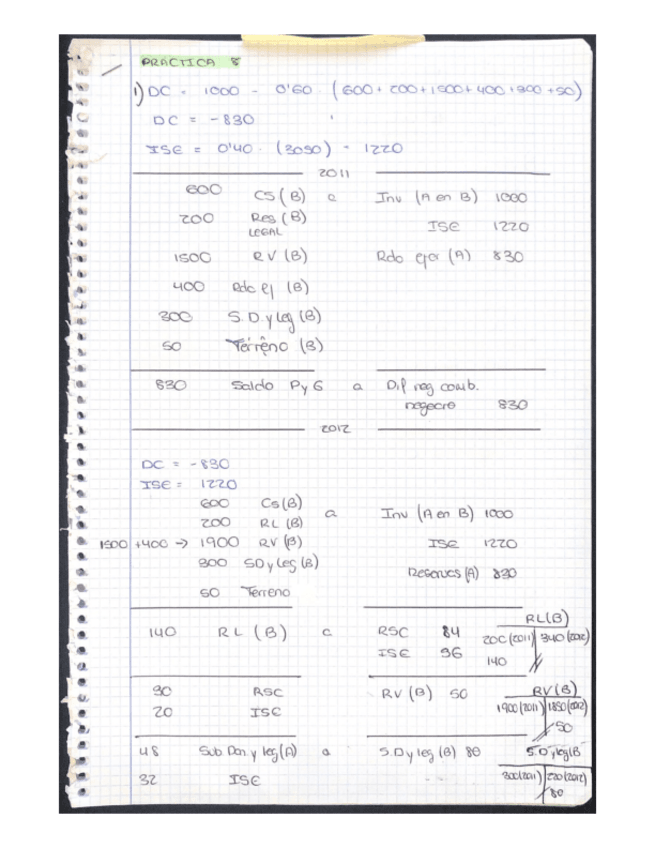 PRACTICA 8
1) DC = 1000 - 0'60 · (600 + 200 + 1500 + 400 + 300 + 50)
DC = -830
ISE = 0'40 · (3050) = 1220
2011
600 CS (B) a Inv (A en B) 1000
200 Res (B) LEGAL ISE 1220
1500 RV (B) Rdo ejer (A) 830
400 Rdo ej (B)
300 S.D. y leg (B)
50 Terreno (B)
830 Saldo PyG a Dif neg comb. negocio 830
2012
DC = -830
ISE = 1220
600 CS (B) a Inv (A en B) 1000
200 RL (B)
1500 + 400 → 1900 RV (B) ISE 1220
300 SD y leg (B) Reservas (A) 830
50 Terreno
RL (B)
140 RL (B) a RSC 84 200 (2011) 340 (2012)
ISE 56 140
30 RSC RV (B) 50 RV (B)
20 ISE 1900 (2011) 1850 (2012)
50
48 Sub Don. y leg (A) a S.D y leg (B) 80 S.D y leg B
32 ISE 300 (2011) 220 (2012)
80